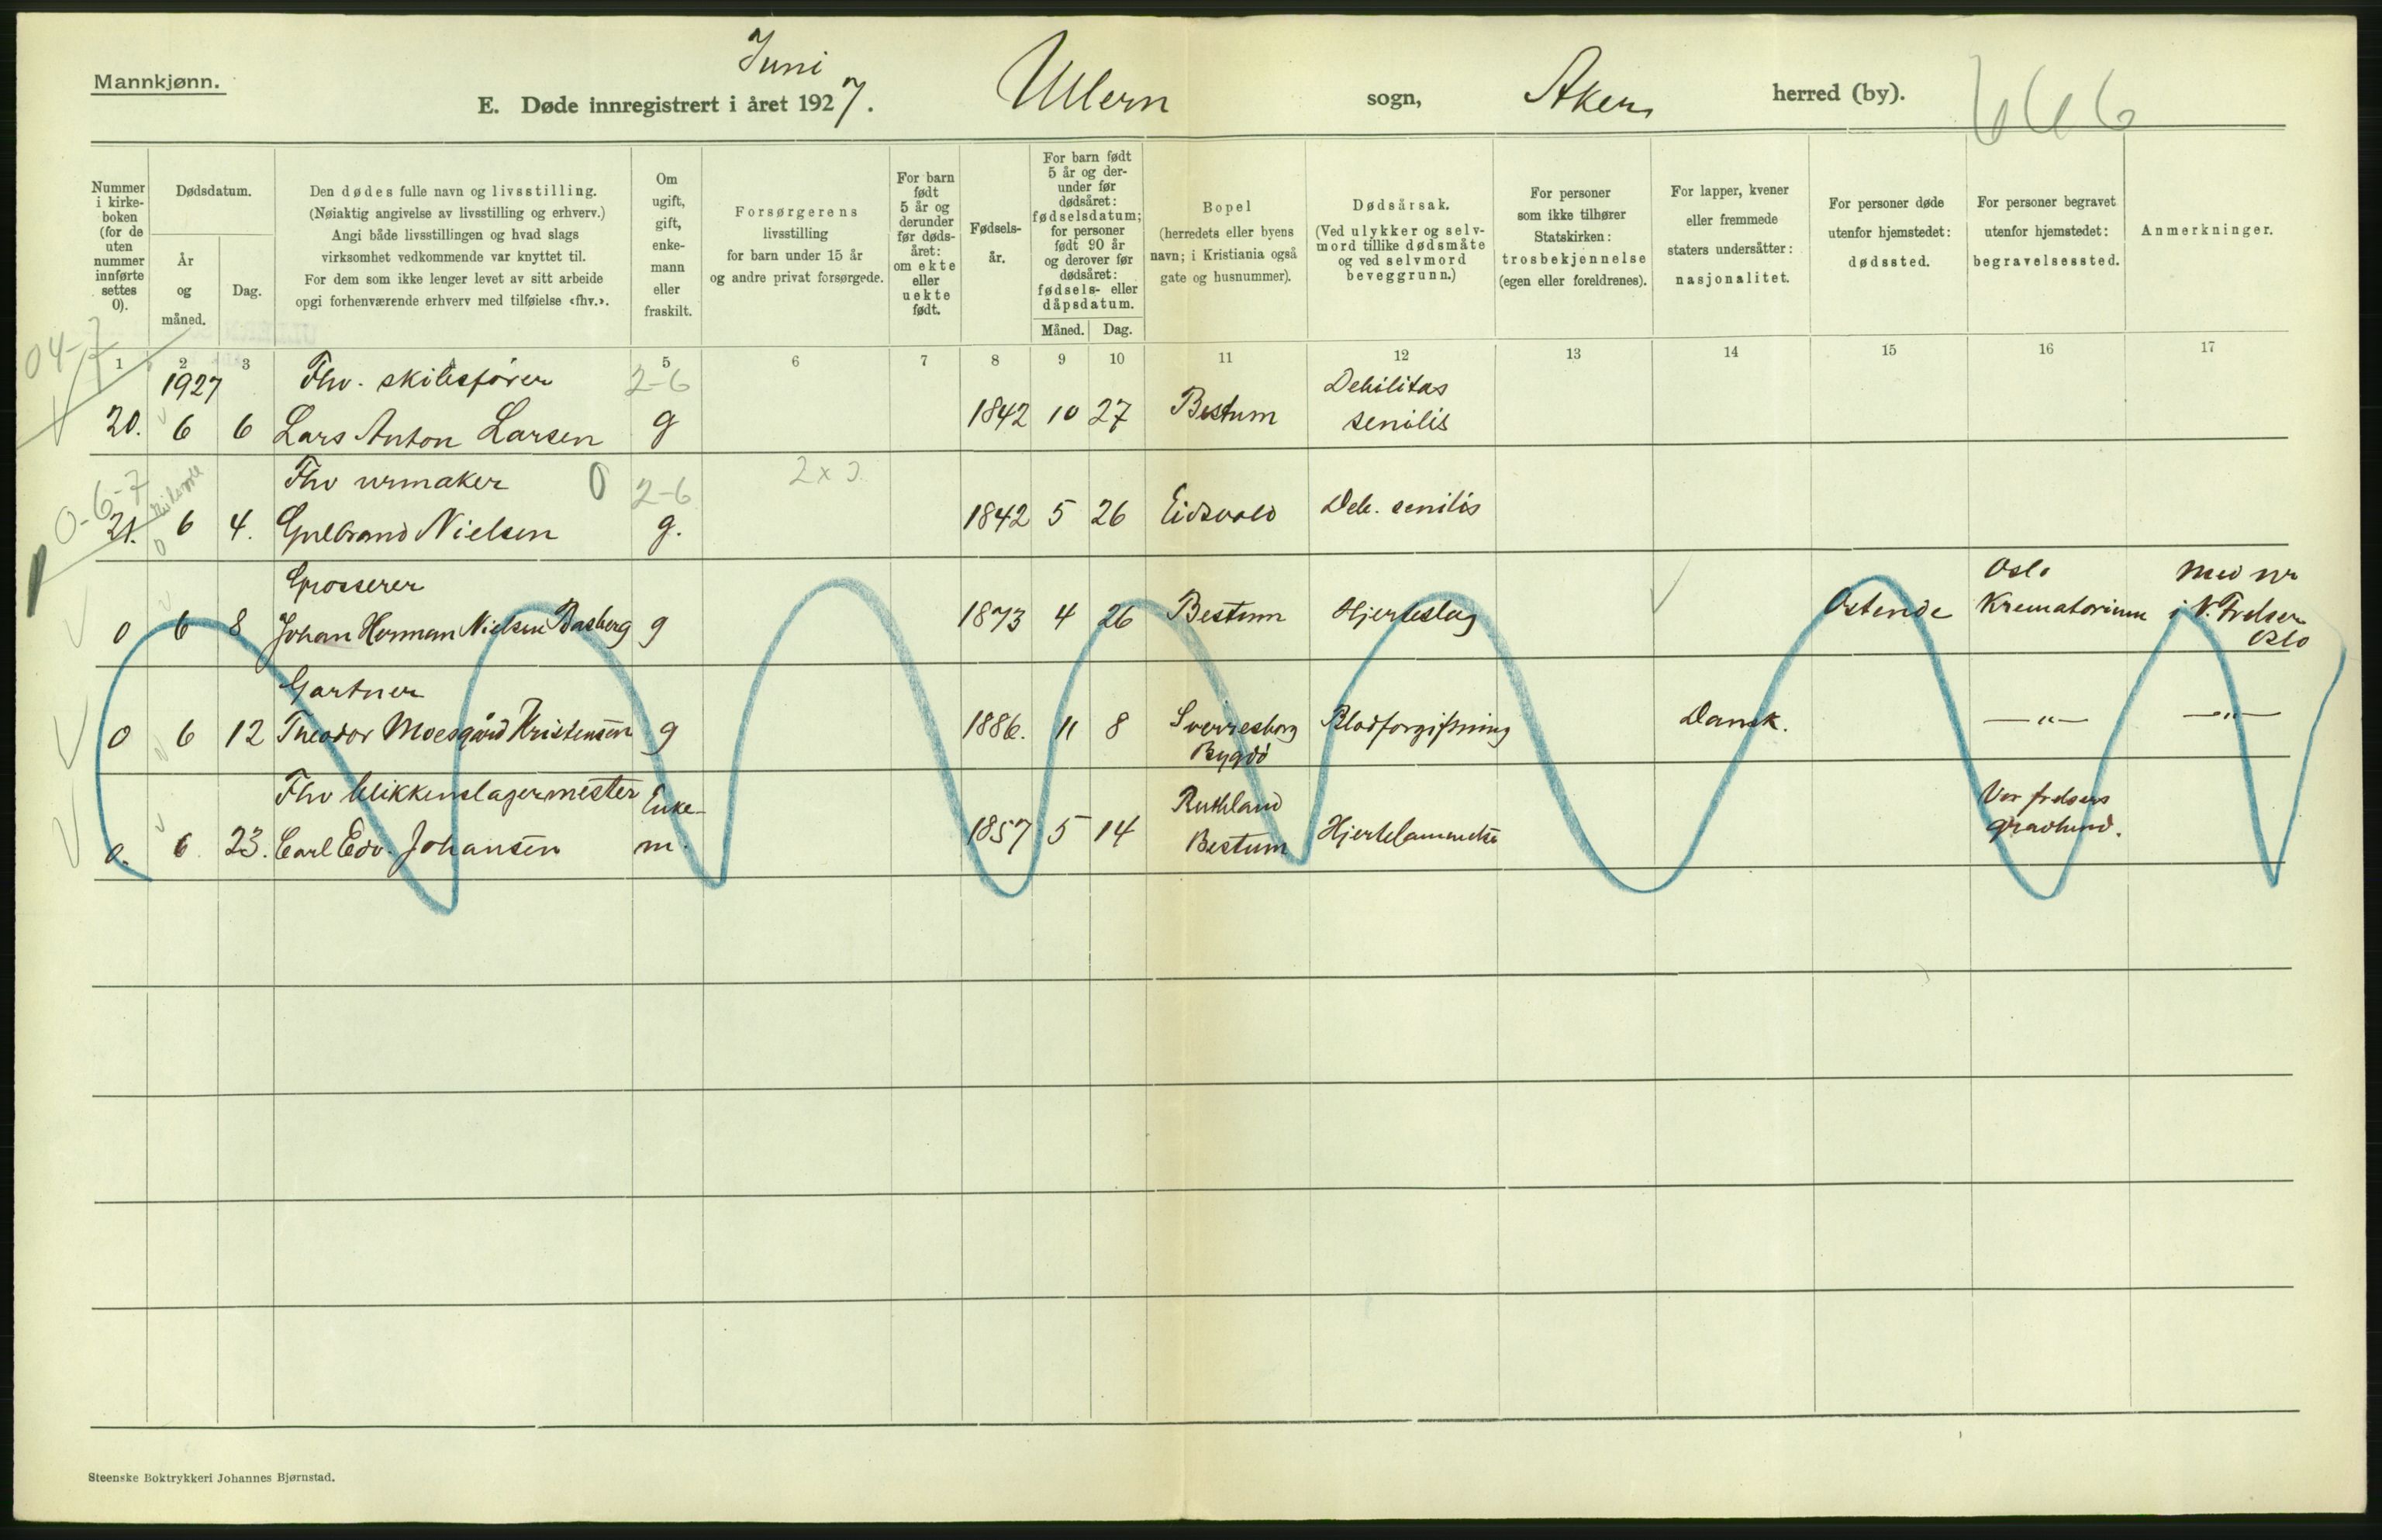 Mannkjønn.
Juni
E. Døde innregistrert i året 1927. Ullern sogn, Aker herred (by). 666
Nummer
i kirke-
boken
(for de
uten
nummer
innførte
settes
0).
Dødsdatum.
År
og
måned.
Dag.
Den dødes fulle navn og livsstilling.
(Nøiaktig angivelse av livsstilling og erhverv.)
Angi både livsstillingen og hvad slags
virksomhet vedkommende var knyttet til.
For dem som ikke lenger levet av sitt arbeide
opgi forhenværende erhverv med tilføielse «fhv.».
Om
ugift,
gift,
enke-
mann
eller
fraskilt.
Forsørgerens
livsstilling
for barn under 15 år
og andre privat forsørgede.
For barn
født
5 år og
derunder
før døds-
året:
om ekte
eller
uekte
født.
Fødsels-
år.
For barn født
5 år og der-
under før
dødsåret:
fødselsdatum;
for personer
født 90 år
og derover før
dødsåret:
fødsels- eller
dåpsdatum.
Måned. Dag.
Bopel
(herredets eller byens
navn; i Kristiania også
gate og husnummer).
Dødsårsak.
(Ved ulykker og selv-
mord tillike dødsmåte
og ved selvmord
beveggrunn.)
For personer
som ikke tilhører
Statskirken:
trosbekjennelse
(egen eller foreldrenes).
For lapper, kvener
eller fremmede
staters undersåtter:
nasjonalitet.
For personer døde
utenfor hjemstedet:
dødssted.
For personer begravet
utenfor hjemstedet:
begravelsessted.
Anmerkninger.
04-7
1 2 3 5 6 7 8 9 10 11 12 13 14 15 16 17
1927 Fhv. skibsfører 2-6 Debilitas
20. 6 6 Lars Anton Larsen g 1842 10 27 Bestum senilis
0-6-7 Fhv urmaker 0 2-6
21. 6 4. Gulbrand Nielsen g. 1842 5 26 Eidsvold Deb. senilis
Grosserer Oslo Med nr
0 6 8 Johan Herman Nielsen Basberg g 1873 4 26 Bestum Hjerteslag Ostende Krematorium i V. Frelser
Oslo
Gartner
0 6 12 Theodor Moesgård Kristensen g 1886. 11 8 Sverresborg Blodforgiftning Dansk. —〃— —〃—
Bygdö
Fhv blikkenslagermester Enke- Ruthland Vor frelsers
0. 6. 23. Carl Edv. Johansen m. 1857 5 14 Bestum Hjertelammelse gravlund.
Steenske Boktrykkeri Johannes Bjørnstad.